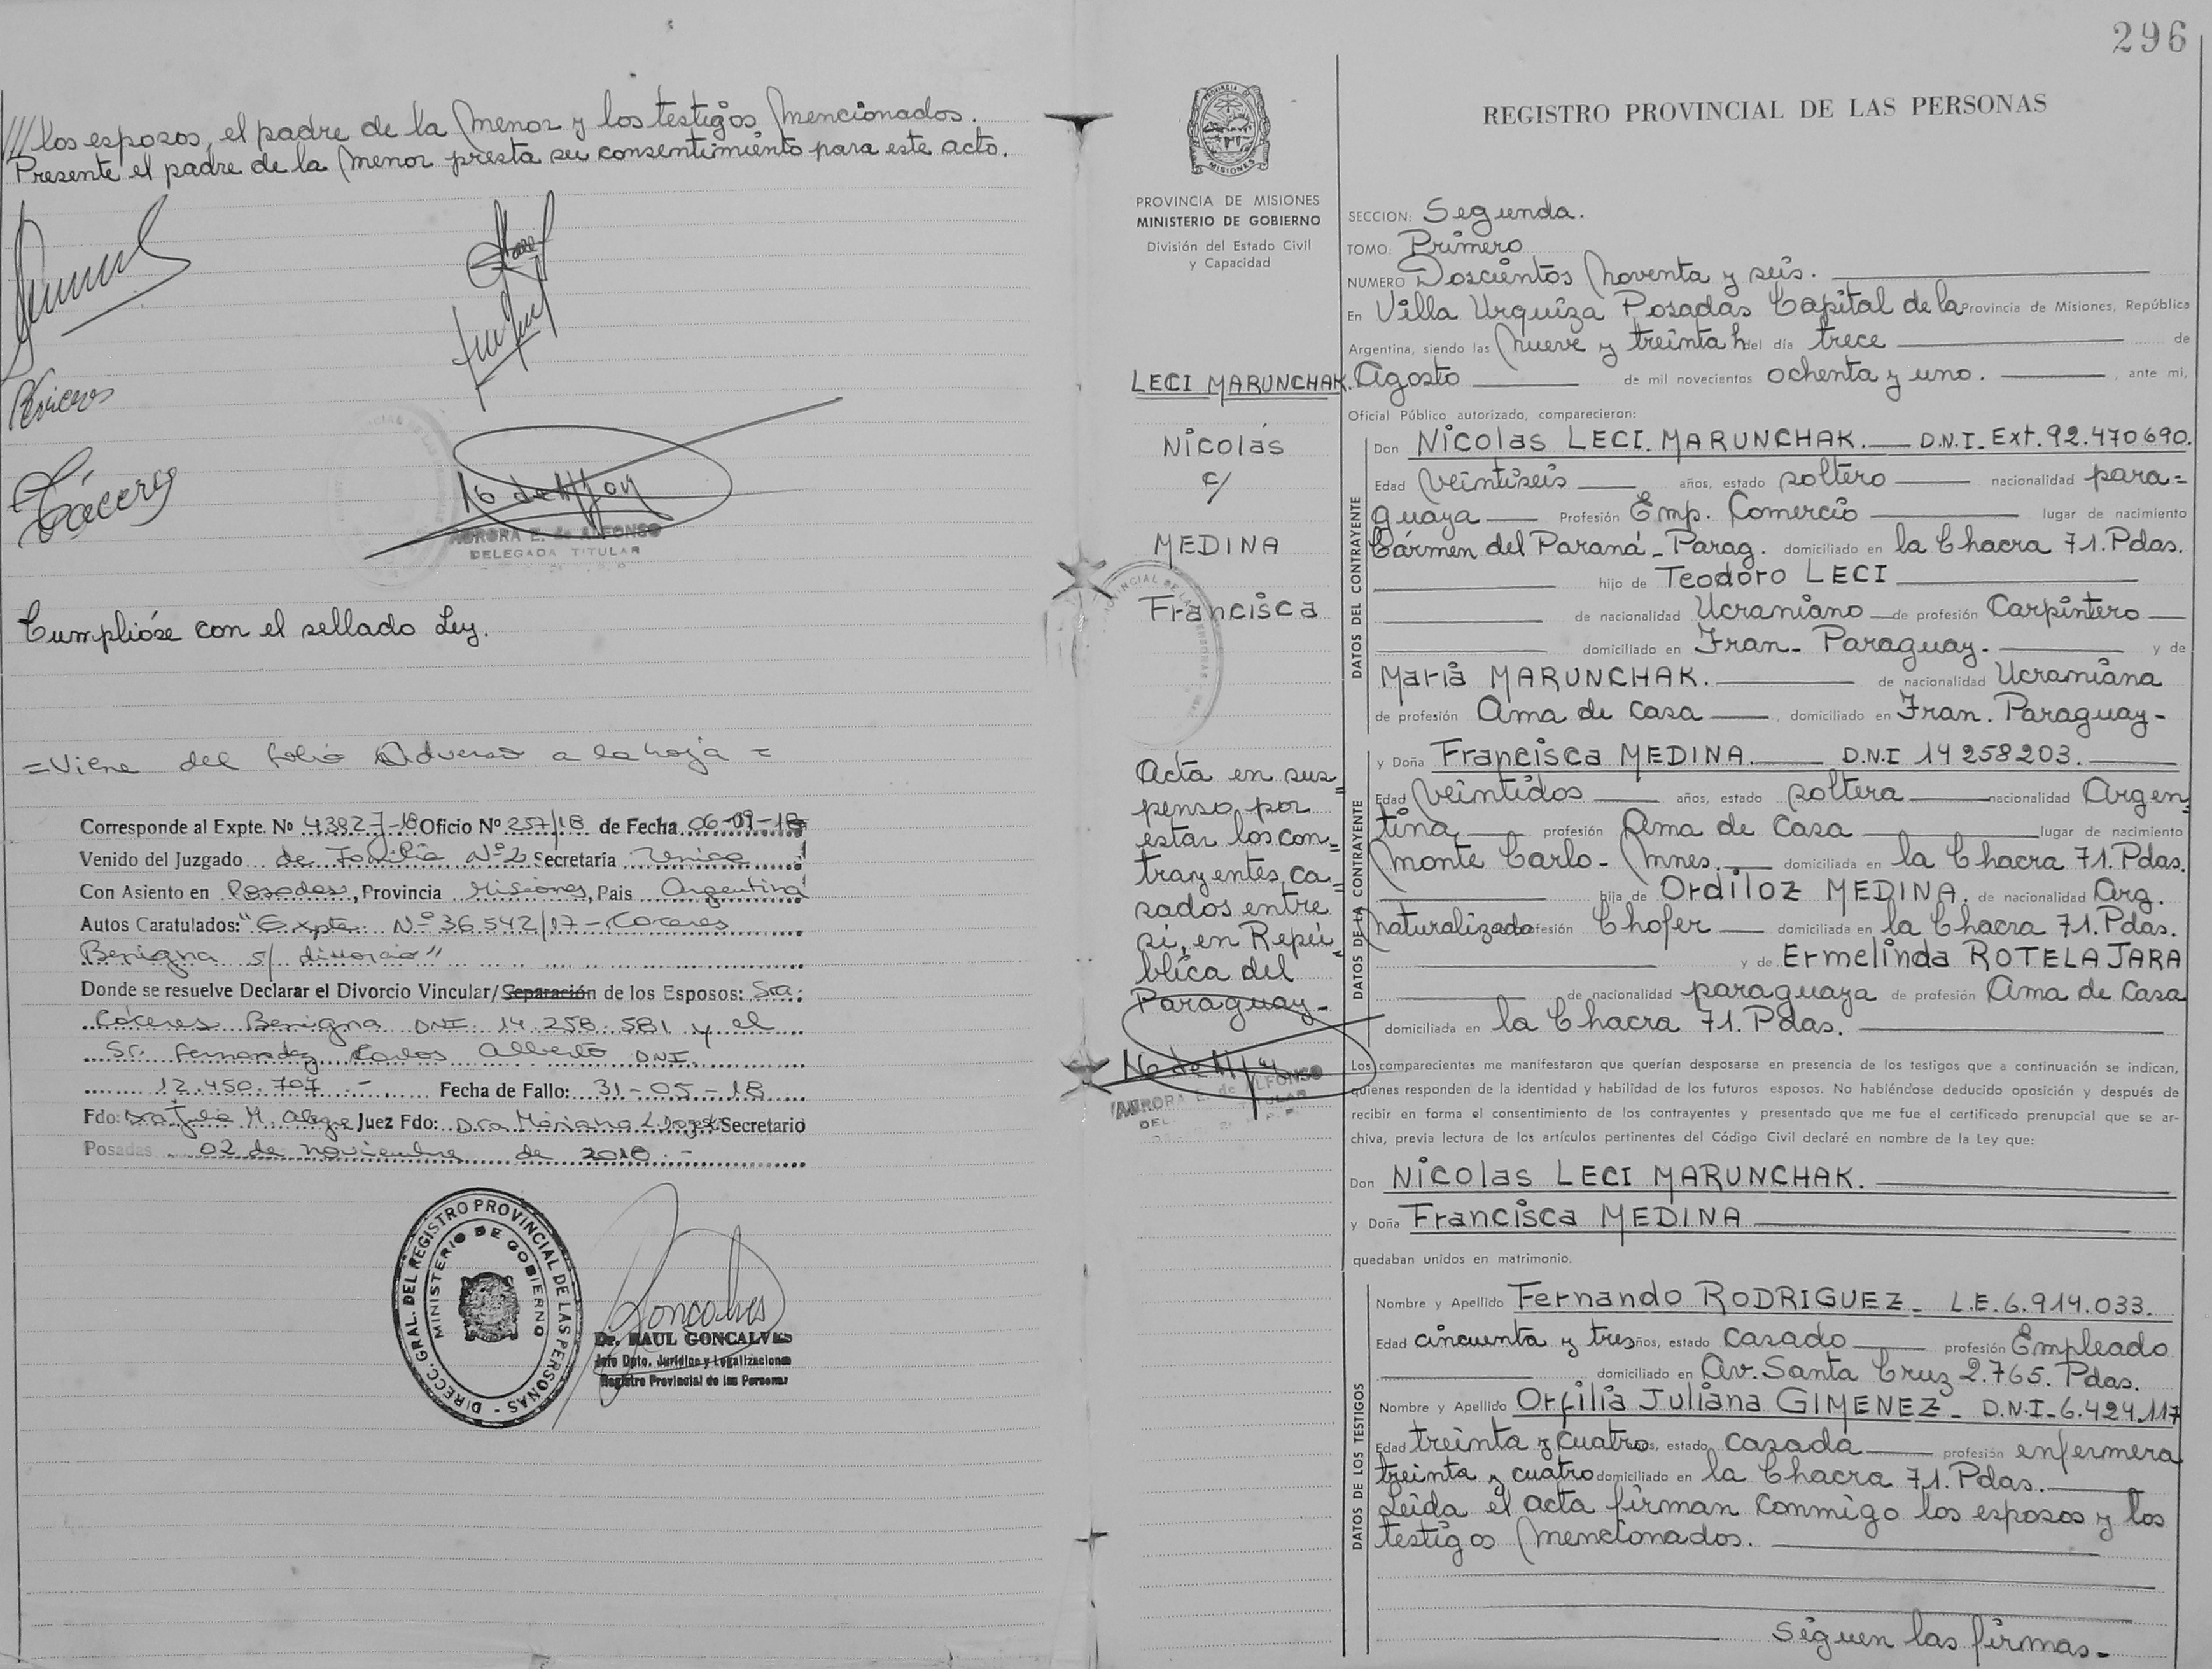 /// los esposos, el padre de la menor y los testigos mencionados.
Presente el padre de la menor presta su consentimiento para este acto.
Cáceres
AURORA E. de ALFONSO
DELEGADA TITULAR
Cumplióse con el sellado Ley.
=Viene del folio Adverso a la hoja=
Corresponde al Expte. Nº 43827-18 Oficio Nº 257/18 de Fecha 06-09-18
Venido del Juzgado de Familia Nº2 Secretaría Unica
Con Asiento en Posadas, Provincia Misiones, Pais Argentina
Autos Caratulados: "Expte. Nº 36.542/17 - Caceres
Benigna s/ divorcio"
Donde se resuelve Declarar el Divorcio Vincular/Separación de los Esposos: Sra.
Cáceres Benigna DNI 14.258.581 y el
Sr. Fernandez Carlos Alberto DNI
12.450.707.- Fecha de Fallo: 31-05-18
Fdo: Dra Julia M. Alegre Juez Fdo: Dra Mariana L. Secretario
Posadas 02 de noviembre de 2018.-
DIRECC. GRAL. DEL REGISTRO PROVINCIAL DE LAS PERSONAS -
MINISTERIO DE GOBIERNO
Goncalves
Dr. RAUL GONCALVES
Jefe Dpto. Jurídico y Legalizaciones
Registro Provincial de las Personas
296
PROVINCIA DE MISIONES
MINISTERIO DE GOBIERNO
División del Estado Civil
y Capacidad
LECI MARUNCHAK.
Nicolás
c/
MEDINA
Francisca
Acta en sus=
penso por
estar los con=
trayentes, ca=
sados entre
sí, en Repú=
blica del
Paraguay-
AURORA E. de ALFONSO
REGISTRO PROVINCIAL DE LAS PERSONAS
SECCION: Segunda.
TOMO: Primero
NUMERO Doscientos noventa y seis.
En Villa Urquiza Posadas Capital de la Provincia de Misiones, República
Argentina, siendo las nueve y treinta h del día trece de
Agosto de mil novecientos ochenta y uno. , ante mi,
Oficial Público autorizado, comparecieron:
DATOS DEL CONTRAYENTE
Don Nicolas LECI. MARUNCHAK. D.N.I. Ext. 92.470690.
Edad veintiseis años, estado soltero nacionalidad para=
guaya Profesión Emp. Comercio lugar de nacimiento
Cármen del Paraná - Parag. domiciliado en la Chacra 71. Pdas.
hijo de Teodoro LECI
de nacionalidad Ucraniano de profesión Carpintero
domiciliado en Fran- Paraguay. y de
Maria MARUNCHAK. de nacionalidad Ucraniana
de profesión Ama de casa , domiciliado en Fran. Paraguay-
DATOS DE LA CONTRAYENTE
y Doña Francisca MEDINA D.N.I 14258203.
Edad veintidos años, estado soltera nacionalidad Argen=
tina profesión Ama de casa lugar de nacimiento
Monte Carlo - Mnes. domiciliada en la Chacra 71. Pdas.
hija de Ordiloz MEDINA. de nacionalidad Arg.
naturalizado profesión Chofer domiciliada en la Chacra 71. Pdas.
y de Ermelinda ROTELA JARA
de nacionalidad paraguaya de profesión Ama de casa
domiciliada en la Chacra 71. Pdas.
Los comparecientes me manifestaron que querían desposarse en presencia de los testigos que a continuación se indican,
quienes responden de la identidad y habilidad de los futuros esposos. No habiéndose deducido oposición y después de
recibir en forma el consentimiento de los contrayentes y presentado que me fue el certificado prenupcial que se ar-
chiva, previa lectura de los artículos pertinentes del Código Civil declaré en nombre de la Ley que:
Don Nicolas LECI MARUNCHAK.
y Doña Francisca MEDINA
quedaban unidos en matrimonio.
DATOS DE LOS TESTIGOS
Nombre y Apellido Fernando RODRIGUEZ - L.E. 6.914.033.
Edad cincuenta y tres años, estado casado profesión Empleado
domiciliado en Av. Santa Cruz 2.765. Pdas.
Nombre y Apellido Orfilia Juliana GIMENEZ - D.N.I- 6.424.117
Edad treinta y cuatro años, estado casada profesión enfermera
treinta y cuatro domiciliado en la Chacra 71. Pdas.
Leída el acta firman conmigo los esposos y los
testigos mencionados.
Siguen las firmas-